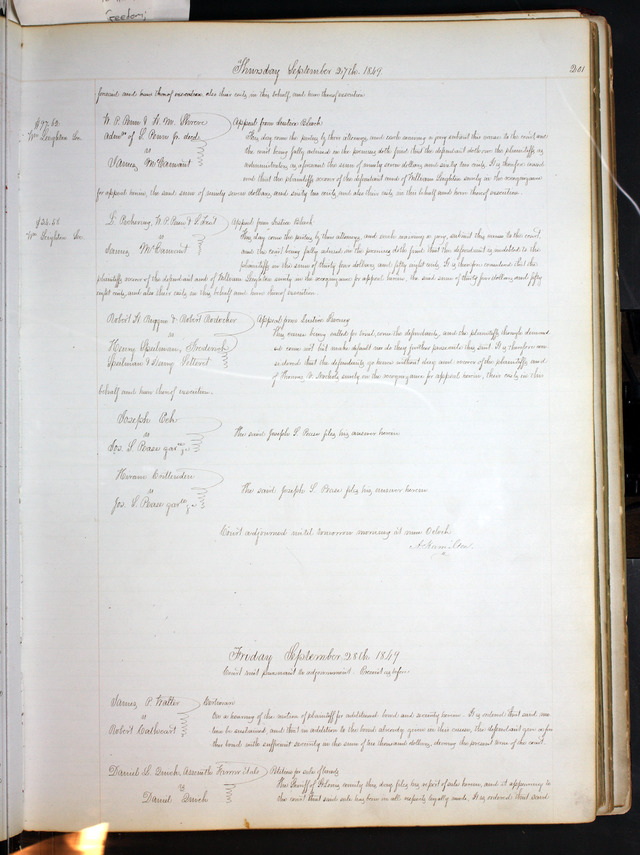 Freedom;
Thursday September 27th. 1849.
201
forward and have thereof execution also their costs in this behalf and have thereof execution
$97.60.
Wm Leighton Sr.
W. P. Penn & H. M. Shreve
Appeal from Justice Black
admrs of S. Penn Jr. decd.
This day come the parties by their attorneys and each waiving a jury submit this cause to the court and
vs
the court being fully advised on the premises doth find that the defendant doth owe the plaintiffs as
James McCamant
administrators as aforesaid the sum of ninety seven dollars and sixty two cents. It is therefore consid-
ered that the plaintiffs recover of the defendant and of William Leighton surety in the recognizance
for appeal herein, the said sum of ninety seven dollars, and sixty two cents and also their costs in this behalf and have thereof execution.
$34.58
Wm Leighton Sr.
L. Pickering, W. P. Penn &
Appeal from Justice Black
This day come the parties by their attorneys and each waiving a jury, submit this cause to the court,
vs
and the court being fully advised on the premises doth find that the defendant is indebted to the
James McCamant
plaintiffs in the sum of thirty four dollars and fifty eight cents. It is therefore considered that the
plaintiffs recover of the defendant and of William Leighton surety in the recognizance for appeal herein, the said sum of thirty four dollars, and fifty
eight cents, and also their costs in this behalf and have thereof execution.
Robert H. & Robert
Appeal from Justice
This cause being called for trial, come the defendants, and the plaintiffs though demand-
vs
ed come not but make default nor do they further prosecute this suit. It is therefore con-
Henry Spielman, Frederick
sidered that the defendants go hence without day and recover of the plaintiffs and
Spielman & Henry
of Thomas surety in the recognizance for appeal herein, their costs in this
behalf and have thereof execution.
Joseph
vs
The said Joseph S. Pease files his answer herein
Jos. S. Pease garnee
Hiram Crittenden
vs
The said Joseph S. Pease files his answer herein
Jos. S. Pease garnee
Court adjourned until tomorrow morning at nine Oclock
A. Hamilton
Friday September 28th. 1849
Court met pursuant to adjournment. Present as before
James P. Walter
On a hearing of the motion of plaintiff for additional bond and security herein. It is ordered that said mo-
vs
tion be sustained, and that in addition to the bond already given in this cause, the defendant give a fur-
Robert Cathcart
ther bond with sufficient security in the sum of two thousand dollars, during the present term of this court.
Daniel
Petition for sale of lands
vs
The Sheriff of St Louis county this day files his report of sales herein, and it appearing to
Daniel
the court that said sale has been in all respects legally made, It is ordered that said